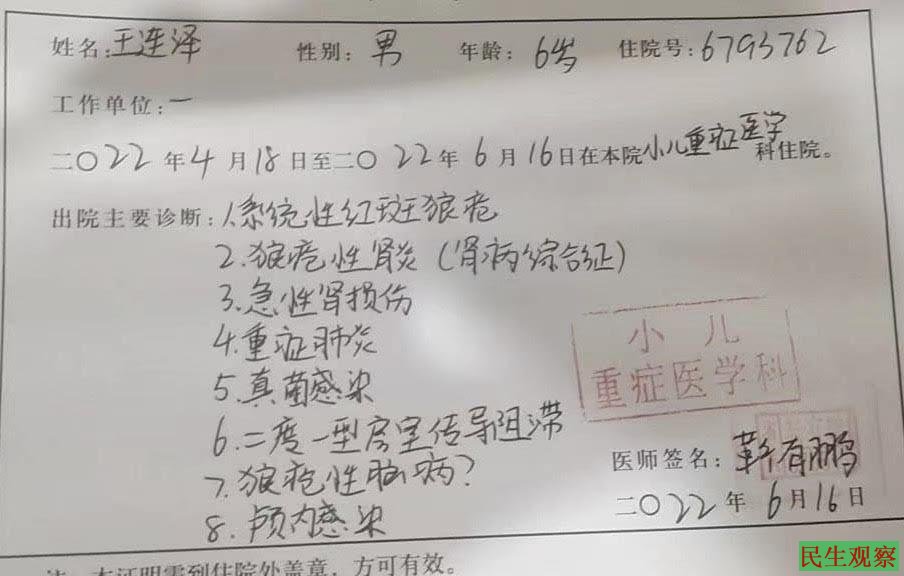 姓名:王连泽 性别:男 年龄:6岁 住院号:6793762
工作单位:一
二〇22年4月18日至二〇22年6月16日在本院小儿重症医学科住院。
出院主要诊断:1.系统性红斑狼疮
2.狼疮性肾炎(肾病综合征)
3.急性肾损伤
4.重症肺炎
5.真菌感染
6.二度一型房室传导阻滞
7.狼疮性脑病?
8.颅内感染
小儿
重症医学科
医师签名:靳有鹏
二〇22年6月16日
注:本证明需到住院处盖章,方可有效。
民生观察